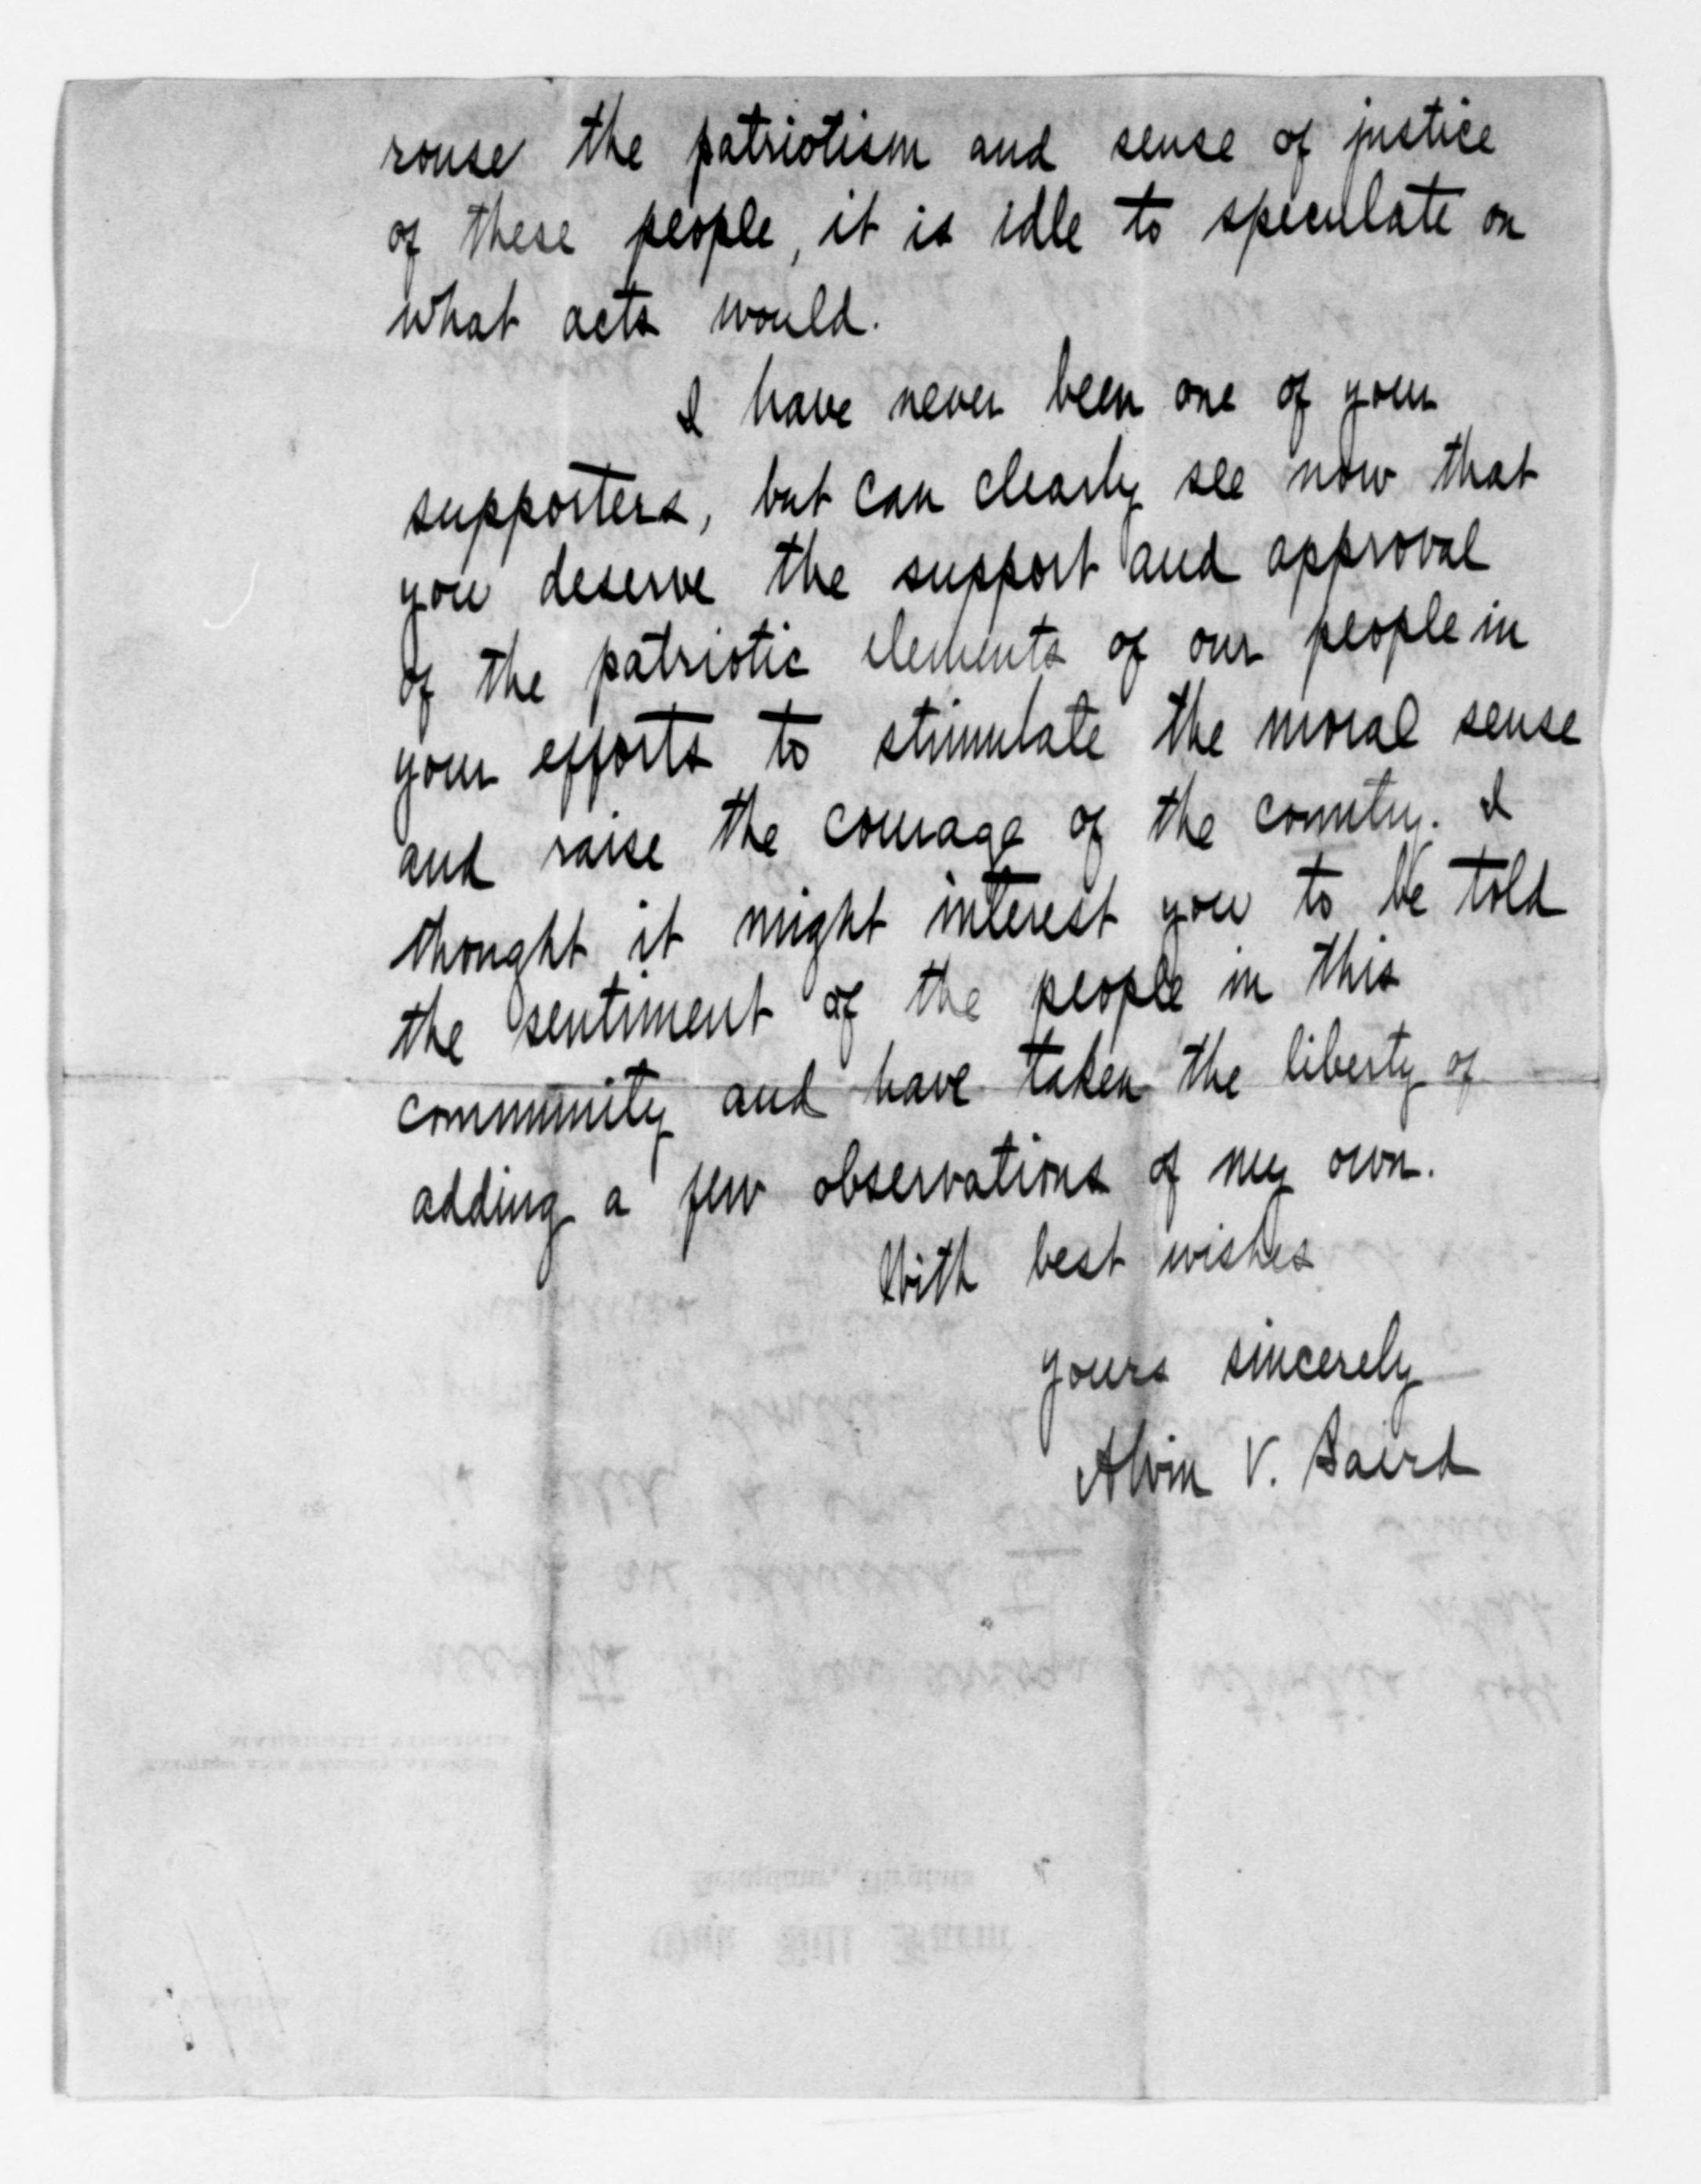 rouse the patriotism and sense of justice
of these people, it is idle to speculate on
what acts would.
I have never been one of your
supporters, but can clearly see now that
you deserve the support and approval
of the patriotic elements of our people in
your efforts to stimulate the moral sense
and raise the courage of the country. I
thought it might interest you to be told
the sentiment of the people in this
community and have taken the liberty of
adding a few observations of my own.
With best wishes
yours sincerely
Alvin V. Baird